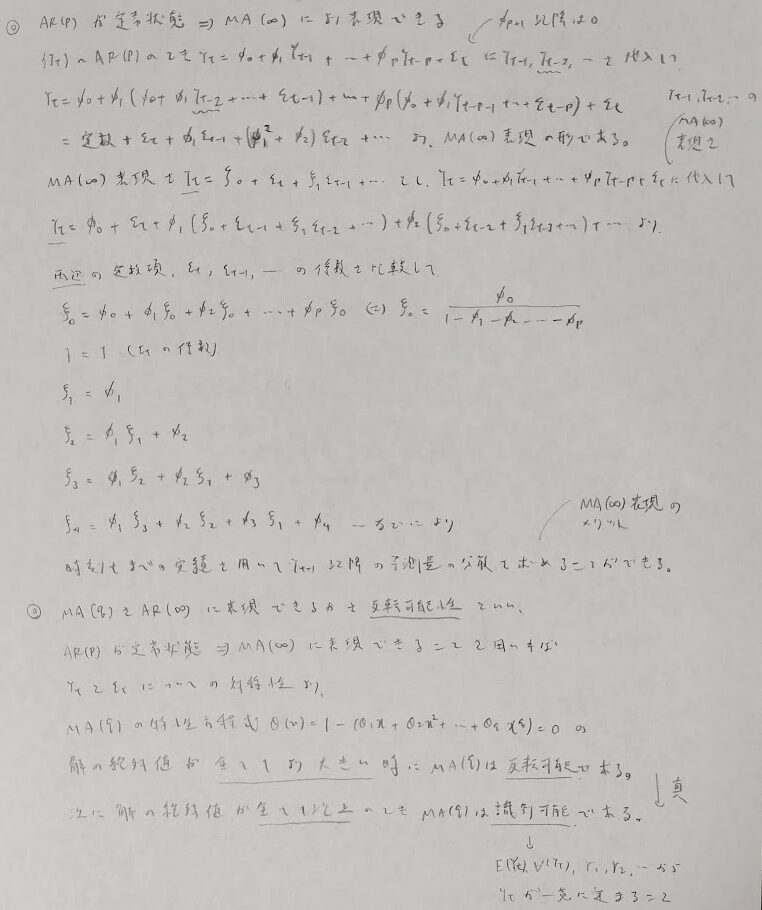 ◎ AR(p) が定常状態 ⇒ MA(∞) により表現できる
φp+1 以降は0
{Yt} ~ AR(p) のとき Yt = φ0 + φ1 Yt-1 + … + φp Yt-p + εt に Yt-1, Yt-2, … を代入し
Yt = φ0 + φ1 (φ0 + φ1 Yt-2 + … + εt-1) + … + φp (φ0 + φ1 Yt-p-1 + … + εt-p) + εt
= 定数 + εt + φ1 εt-1 + (φ1² + φ2) εt-2 + … より、MA(∞) 表現の形である。
Yt-1, Yt-2, … の
MA(∞)
表現を
MA(∞) 表現を Yt = ξ0 + εt + ξ1 εt-1 + … とし、Yt = φ0 + φ1 Yt-1 + … + φp Yt-p + εt に代入して
Yt = φ0 + εt + φ1 (ξ0 + εt-1 + ξ1 εt-2 + …) + φ2 (ξ0 + εt-2 + ξ1 εt-3 + …) + … より、
両辺の定数項、εt, εt-1, … の係数を比較して
ξ0 = φ0 + φ1 ξ0 + φ2 ξ0 + … + φp ξ0 ⇔ ξ0 = φ0 / (1 - φ1 - φ2 - … - φp)
1 = 1 (εt の係数)
ξ1 = φ1
ξ2 = φ1 ξ1 + φ2
ξ3 = φ1 ξ2 + φ2 ξ1 + φ3
ξ4 = φ1 ξ3 + φ2 ξ2 + φ3 ξ1 + φ4 … などにより
MA(∞) 表現の
メリット
時刻tまでの実績を用いて Yt+1 以降の予測量の分散を求めることができる。
◎ MA(q) を AR(∞) に表現できるかを反転可能性といい、
AR(p) が定常状態 ⇒ MA(∞) に表現できることを用いれば
Yt と εt についての対称性より、
MA(q) の特性方程式 Θ(x) = 1 - (θ1x + θ2x² + … + θq x^q) = 0 の
解の絶対値が全て1より大きい時に MA(q) は反転可能である。
次に解の絶対値が全て1以上のとき MA(q) は識別可能である。
↓ 真
↓
E(Yt), V(Yt), r1, r2, … から
Yt が一意に定まること